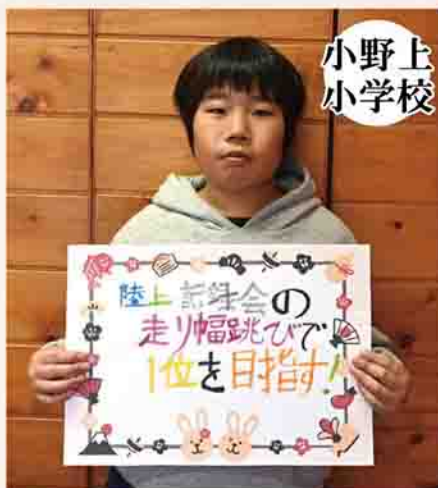 小野上
小学校
陸上記録会の
走り幅跳びで
1位を目指す!